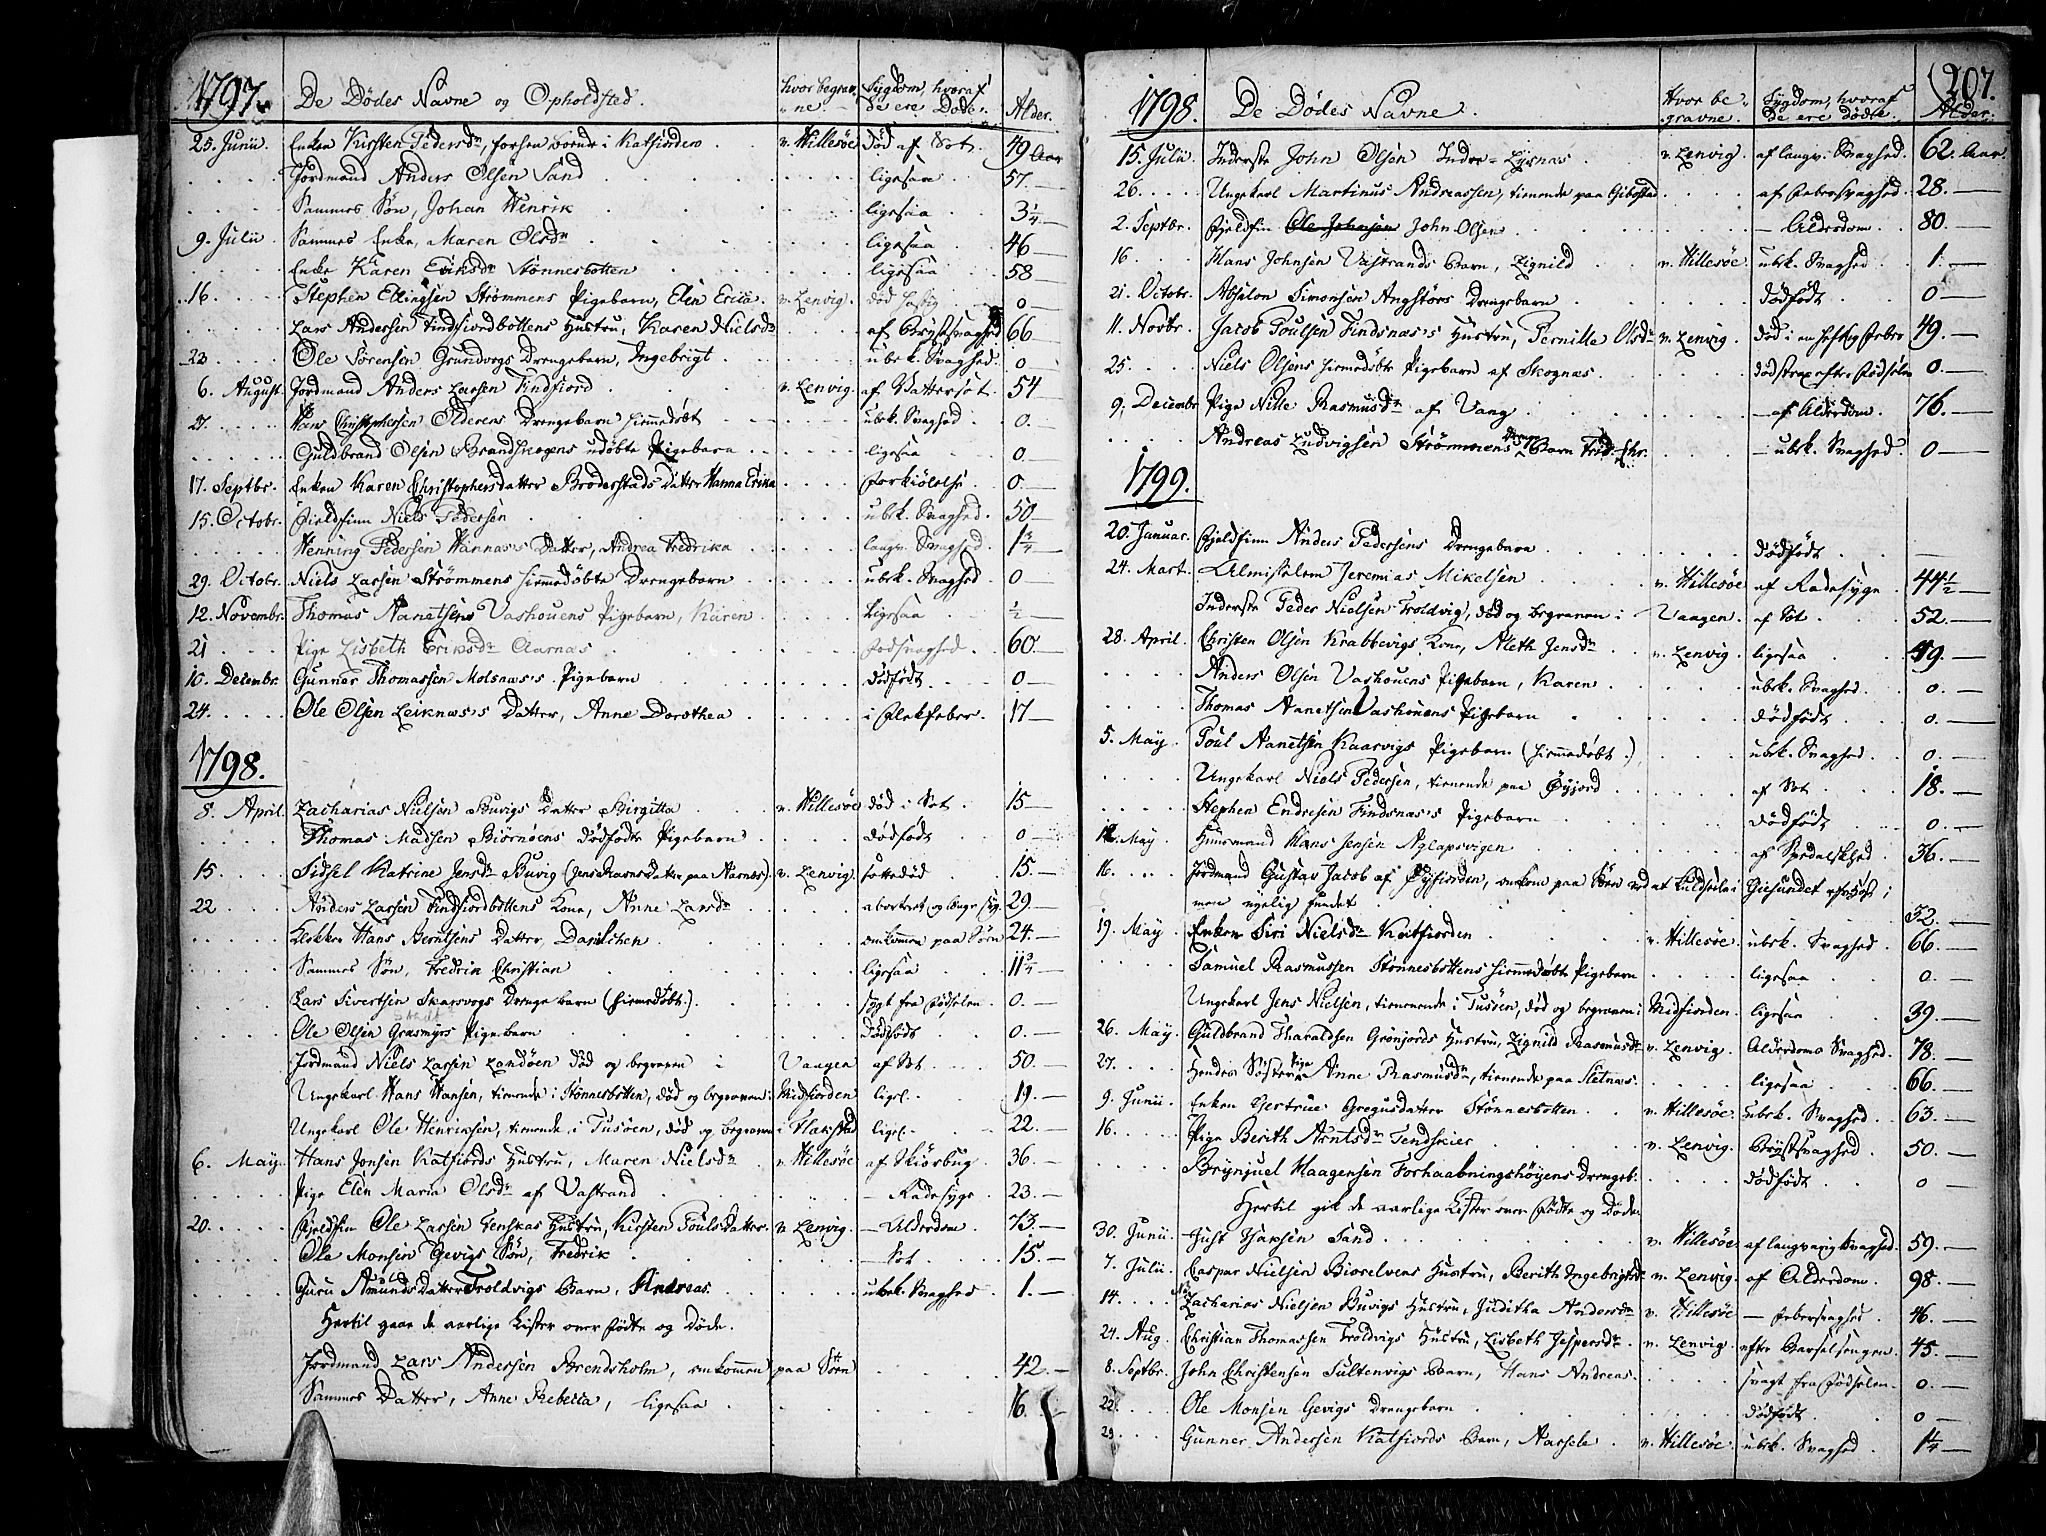 1797. De Dödes Navne og Opholdsted. hvor begrav- ne. Sygdom, hvoraf de ere Döde. Alder.
25. Junii. Enken Kirsten Pedersdr, forhen boende i Katfiorden v. Hillesöe död af Sot. 49 Aar
Jordmand Anders Olsen Sand ligesaa 57.
Sammes Sön, Johan Henrik ligesaa 3 1/4
9. Julii Sammes Enke, Maren Olsdr ligesaa 46
Enke Karen Eriksdr Stönnesbotten ligesaa 58
16. Stephen Ellingsen Strömmens Pigebarn, Elen Erica v. Lenvig. död hastig 0
Lars Andersen Findfiordbottens Hustru, Karen Nielsdr af Brystsvaghed 66
23 Ole Sörensen Grundvogs Drengebarn, Ingebrigt ubek. Svaghed. 0
6. August. Jordmand Anders Larsen Findfiord v. Lenvig. af Vattersot. 54
27. Hans Christophersen Olderens Drengebarn hiemmedöbt ubek. Svaghed 0.
Guldbrand Olsen Brandskogens udöbte Pigebarn ligesaa 0
17. Septbr. Enken Karen Christophersdatter Broderstads Datter Hanna Erika Forkiölelse 0.
15. Octobr. Fieldfinn Niels Pedersen ubek. Svaghed. 50
Henning Pedersen Hannas's Datter, Andrea Fredrika langv. Svaghed. 1 3/4
29. Octobr. Niels Larsen Strömmens hiemmedöbte Drengebarn ubek. Svaghed. 0
12. Novembr. Thomas Nanetsens Vashouens Pigebarn, Karen ligesaa 1/2
21 Pige Lisbeth Eriksdr Aarnæs 60
10. Decembr. Gunnar Thomassen Molsnæs's Pigebarn dödfödt. 0
24. Ole Olsen Leiknæs's Datter, Anne Dorothea i Flekfeber. 17
1798.
8. April. Zacharias Nielsen Buvigs Datter Birgitta v. Hillesöe död i Sot 15
Thomas Madsen Biörnöens dödfödte Pigebarn dödfödt 0
15. Sidsel Katrine Jensdr Buvig (Jens Datter paa Aarnæs) v. Lenvig. sottedöd 15.
22 Anders Larsen Findfiordbottens Kone, Anne Larsdr 29.
Klokker Hans Berntsens Datter, Danlichen omkommen paa Söen 24.
Sammes Sön, Fredrik Christian ligesaa 11 3/4
Lars Sivertsen Skarsvogs Drengebarn (hiemmedöbt.) sygt fra Födselen 0.
Ole Olsen Grasmyrs Pigebarn dödfödt 0.
Jordmand Niels Larsen Landöen död og begraven i Vaagen af Sot 50.
Ungekarl Hans Hansen, tienende i Stönnesbotten, död og begraven i Midfiorden ligel. 19.
Ungekarl Ole Henriksen, tienende i Tusöen, död og begraven i Flakstad ligel. 22.
6. May. Hans Jonsen Katfiords Hustru, Maren Nielsdr v. Hillesöe af Skiörbug. 36.
Pige Elen Maria Olsdr af Vastrand – Radesyge 23.
20. Fieldfin Ole Larsen Fenskas Hustru, Kirsten Pouls datter. v. Lenvig. – Alderdom 73.
Ole Monsen Gevigs Sön, Fredrik – Sot 15.
Guru Amundsdatter Troldvigs Barn, Andreas. ubek. Svaghed 1.
Hertil gaar de aarlige Lister over Födte og Döde.
Jordmand Lars Andersen Brendsholm, omkommen paa Söen 42.
Sammes Datter, Anne Rebecca, ligesaa 16.
207.
1798. De Dödes Navne. Hvor be- gravne. Sygdom, hvoraf De ere dödde. Alder.
15. Julii. Inderste John Olsen Indre-Lysnæs v. Lenvig. af langv. Svaghed. 62. Aar.
26. Ungekarl Martinus Andreassen, tienende paa Gibostad af Febersvaghed. 28.
2. Septbr. Fieldfin Ole Johnsen John Olsen – Alderdom 80.
16. Hans Johnsen Vastrands Barn, Zignild v. Hillesöe. ubek. Svaghed 1.
21. Octobr. Absalon Simonsen Angstörs Drengebarn dödfödt 0
11. Novbr. Jacob Poulsen Findsnæs's Hustru, Pernille Olsdr v. Lenvig. död i en heftig Feber 49.
25. Niels Olsens hiemmedöbte Pigebarn af Skognæs död strax efter Födselen 0.
9. Decembr Pige Nille Rasmusdr af Vang – af Alderdom. 76.
Andreas Ludvigsen Strömmens Drenge Barn Frid. Chr. – ubek. Svaghed. 0
1799.
20. Januar. Fieldfinn Anders Pedersens Drengebarn dödfödt
24. Mart. Almisselem Jeremias Mikelsen v. Hillesöe af Radesyge 44 1/2
Inderste Peder Nielsen Troldvig, död og begraven i Vaagen af Sot 52.
28. April. Christen Olsen Krabbevigs Kone, Aleth Jensdr v. Lenvig. ligesaa 49.
Anders Olsen Vashouens Pigebarn, Karen ubek. Svaghed. 0.
Thomas Nanetsen Vashouens Pigebarn dödfödt 0.
5. May. Poul Nanetsen Kaarvigs Pigebarn (hiemmedöbt.) ubek. Svaghed. 0.
Ungekarl Niels Pedersen, tienende paa Öyjord af Sot 18.
Stephen Endresen Findsnæs's Pigebarn dödfödt 0.
12. May. Huusmand Hans Jensen Aglapsvigen af Spedalskhed. 36.
16. Jordmand Gustav Jacob af Öyfiorden, omkom paa Söen ved at Kuldseile i Giesundet
men nyelig fundet 32.
19. May Enken Siri Nielsdr Katfiorden v. Hillesöe. ubek. Svaghed 66.
Samuel Rasmussen Stönnesbottens hiemmedöbte Pigebarn ligesaa 0.
Ungekarl Jens Nielsen, tienende i Tusöen, död og begraven i Midfiorden. ligesaa 39.
26. May. Guldbrand Tharaldsen Grönjords Hustru, Zignild Rasmusdr v. Lenvig. Alderdoms Svaghed. 78.
27. Hendes Söster Pige Anne Rasmusdr, tienende paa Sletnæs. ligesaa 66.
9. Junii Enken Gertrue Gregusdatter Stönnesbotten v. Hillesöe. ubek. Svaghed. 63.
16. Pige Berith Arntsdr Tendskier v. Lenvig. Brystsvaghed 50.
Brynjuel Haagensen Forhaabningshöyens Drengeb. dödfödt 0
Hertil gik de aarlige Lister over Födte og Döde.
30. Junii Just Sand v. Hillesöe. af langvarig Svaghed. 59.
7. Julii Caspar Nielsen Bioselvens Hustru, Berith Ingebrigtsdr v. Lenvig. af Alderdom 98.
14. Zacharias Nielsen Buvigs Hustru, Juditha Andersdr v. Hillesöe – Febersvaghed. 46.
24. Aug. Christian Thomassen Troldvigs Hustru, Lisbeth Jespersdr v. Lenvig. efter Barselsengen. 45.
8. Septbr. John Christensen Sultenvigs Barn, Hans Andreas. svagt fra Födselen 0.
22. Ole Monsen Gevigs Drengebarn dödfödt 0
29. Gunner Andersen Katfiords Barn, Aassele v. Hillesöe. ubek. Svaghed. 1 1/4